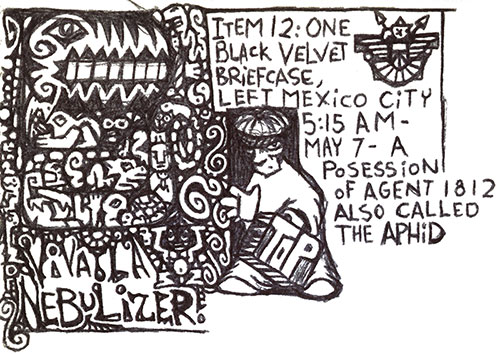 ITEM 12: ONE
BLACK VELVET
BRIEFCASE,
LEFT MEXICO CITY
5:15 AM-
MAY 7- A
POSESSION
OF AGENT 1812
ALSO CALLED
THE APHID
TOP
VIVA LA
NEBULIZER!